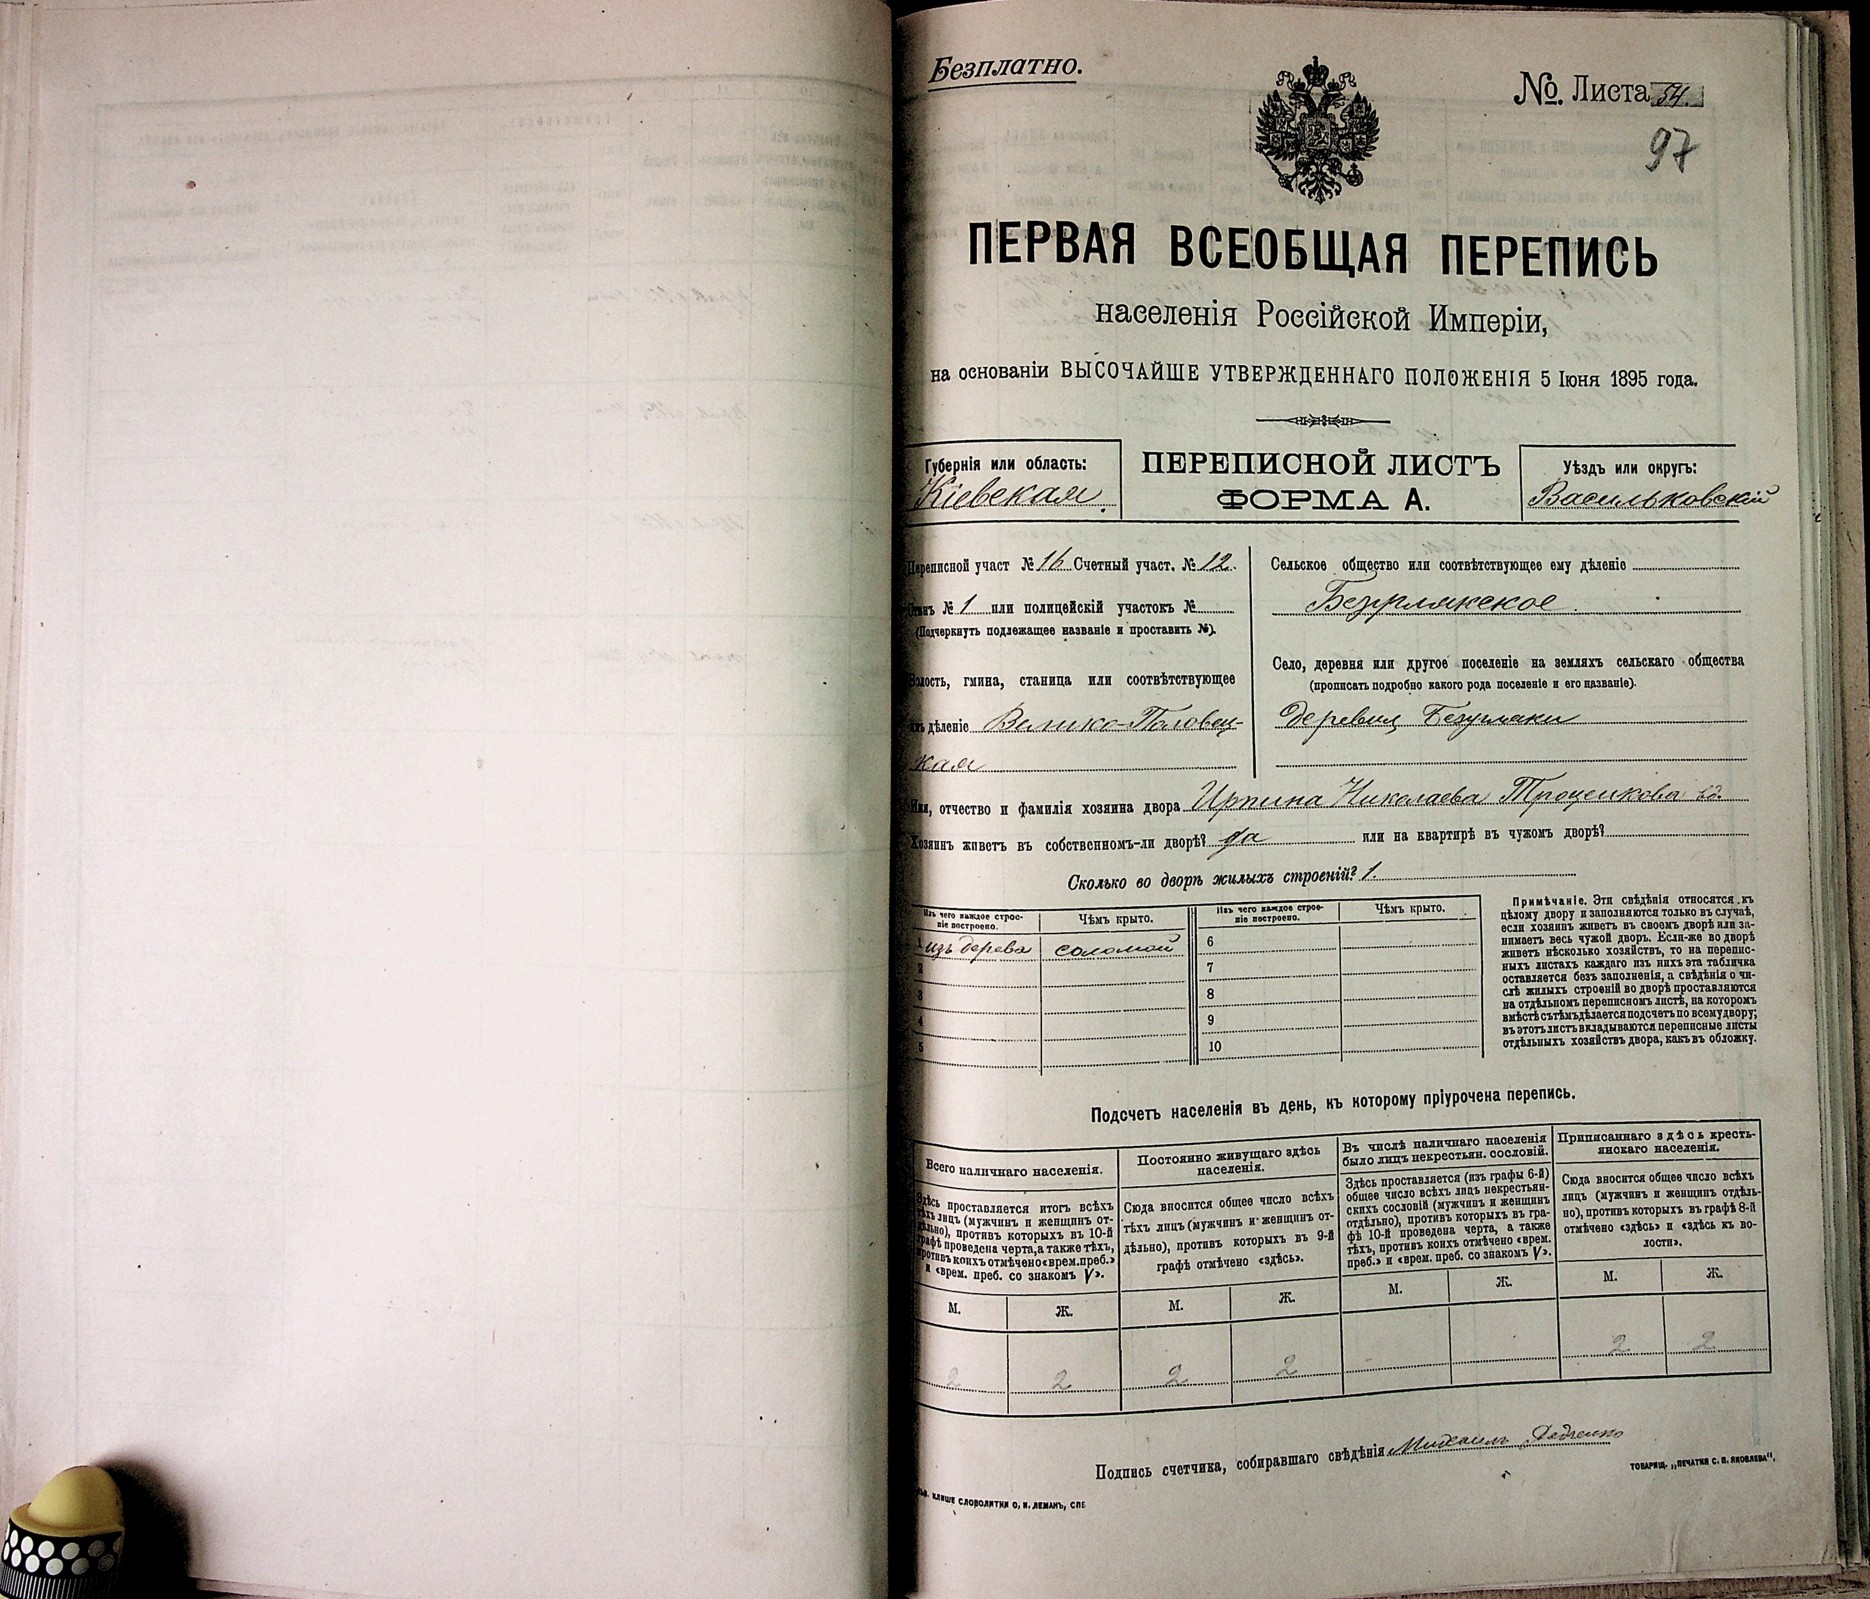 Безплатно.
№. Листа 54.
97
ПЕРВАЯ ВСЕОБЩАЯ ПЕРЕПИСЬ
населенія Россійской Имперіи,
на основаніи ВЫСОЧАЙШЕ УТВЕРЖДЕННАГО ПОЛОЖЕНІЯ 5 Іюня 1895 года.
Губернія или область:
Кіевская
ПЕРЕПИСНОЙ ЛИСТЪ
ФОРМА А.
Уѣздъ или округъ:
Васильковскій
Переписной участ № 16 Счетный участ. № 12.
Станъ № 1 или полицейскій участокъ №
(Подчеркнуть подлежащее названіе и проставить №).
Волость, гмина, станица или соотвѣтствующее
имъ дѣленіе Велико-Половец-
кая
Сельское общество или соотвѣтствующее ему дѣленіе
Безуглякское
Село, деревня или другое поселеніе на земляхъ сельскаго общества
(прописать подробно какого рода поселеніе и его названіе).
деревня Безугляки
Имя, отчество и фамилія хозяина двора Ирпина Николаева Троценкова вд.
Хозяинъ живетъ въ собственномъ-ли дворѣ? да или на квартирѣ въ чужомъ дворѣ?
Сколько во дворѣ жилыхъ строеній? 1.
Изъ чего каждое строе-
ніе построено.
Чѣмъ крыто.
Изъ чего каждое строе-
ніе построено.
Чѣмъ крыто.
1 изъ дерева соломой
2
3
4
5
6
7
8
9
10
Примѣчаніе. Эти свѣдѣнія относятся къ
цѣлому двору и заполняются только въ случаѣ,
если хозяинъ живетъ въ своемъ дворѣ или за-
нимаетъ весь чужой дворъ. Если-же во дворѣ
живетъ нѣсколько хозяйствъ, то на перепис-
ныхъ листахъ каждаго изъ нихъ эта табличка
оставляется безъ заполненія, а свѣдѣнія о чи-
слѣ жилыхъ строеній во дворѣ проставляются
на отдѣльномъ переписномъ листѣ, на которомъ
вмѣстѣ съ тѣмъ дѣлается подсчетъ по всему двору;
въ этотъ листъ вкладываются переписные листы
отдѣльныхъ хозяйствъ двора, какъ въ обложку.
Подсчетъ населенія въ день, къ которому пріурочена перепись.
Всего наличнаго населенія.
Здѣсь проставляется итогъ всѣхъ
тѣхъ лицъ (мужчинъ и женщинъ от-
дѣльно), противъ которыхъ въ 10-й
графѣ проведена черта, а также тѣхъ,
противъ коихъ отмѣчено «врем. преб.»
и «врем. преб. со знакомъ V».
М. Ж.
2 2
Постоянно живущаго здѣсь
населенія.
Сюда вносится общее число всѣхъ
тѣхъ лицъ (мужчинъ и женщинъ от-
дѣльно), противъ которыхъ въ 9-й
графѣ отмѣчено «здѣсь».
М. Ж.
2 2
Въ числѣ наличнаго населенія
было лицъ некрестьян. сословій.
Здѣсь проставляется (изъ графы 6-й)
общее число всѣхъ лицъ некрестьян-
скихъ сословій (мужчинъ и женщинъ
отдѣльно), противъ которыхъ въ гра-
фѣ 10-й проведена черта, а также
тѣхъ, противъ коихъ отмѣчено «врем.
преб.» и «врем. преб. со знакомъ V».
М. Ж.
Приписаннаго здѣсь кресть-
янскаго населенія.
Сюда вносится общее число всѣхъ
лицъ (мужчинъ и женщинъ отдѣль-
но), противъ которыхъ въ графѣ 8-й
отмѣчено «здѣсь» и «здѣсь къ во-
лости».
М. Ж.
2 2
Подпись счетчика, собиравшаго свѣдѣнія Михаилъ
клише словолитни О. И. ЛЕМАНЪ, СПБ
ТОВАРИЩ. „ПЕЧАТНЯ С. П. ЯКОВЛЕВА“,